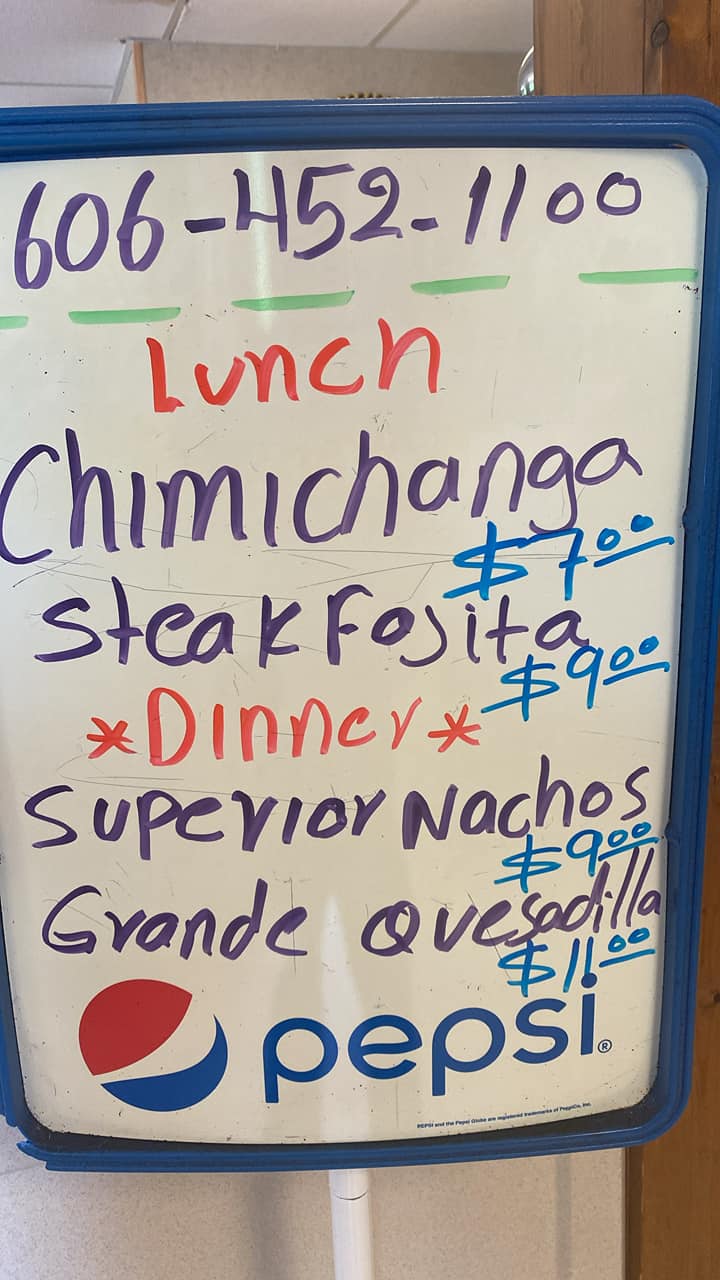 606-452-1100
Lunch
Chimichanga
$7.00
Steak Fojita
$9.00
*Dinner*
Superior Nachos
$9.00
Grande Quesadilla
$11.00
pepsi®
PEPSI and the Pepsi Globe are registered trademarks of PepsiCo, Inc.